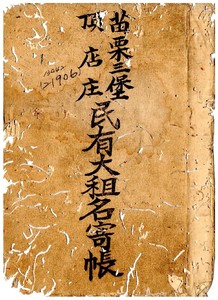 苗栗三堡
頂店庄
民有大租名寄帳
21906